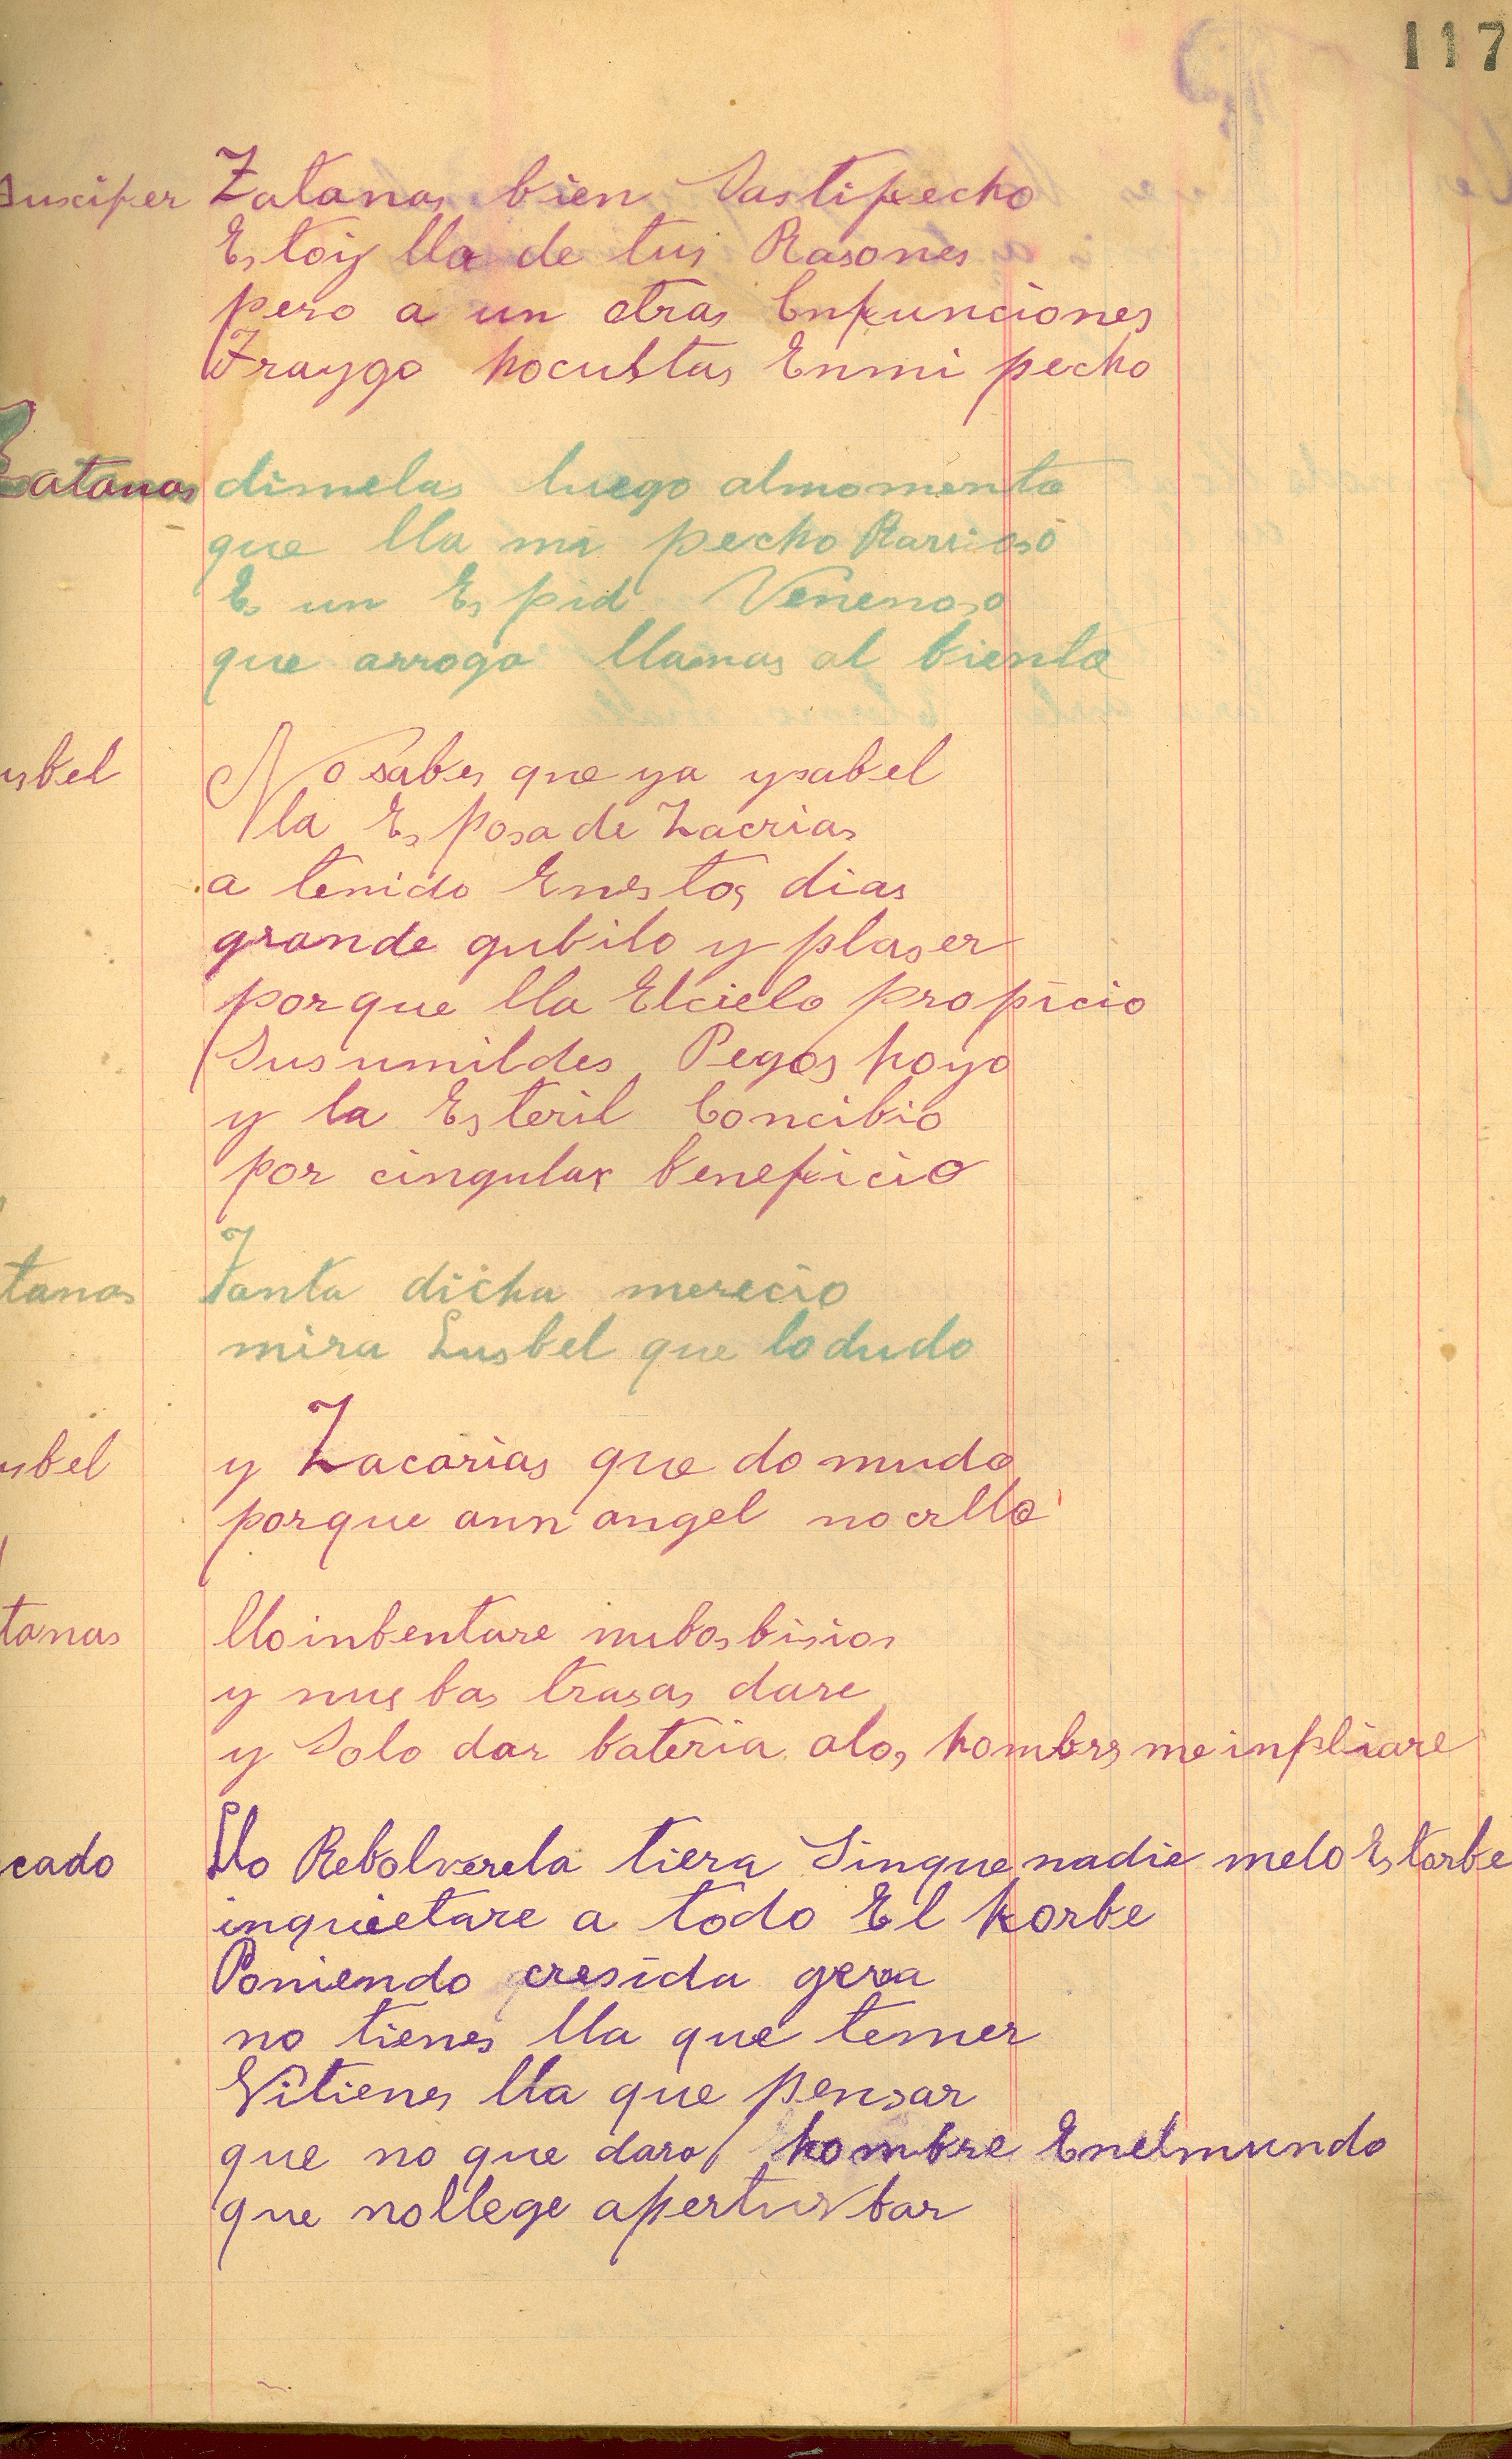 117
Luscifer Zatanas bien Sastifecho
Estoiy lla de tus Rasones
pero a un otras Confunciones
Traygo hocultas Enmi pecho
Zatanas dimelas luego almomento
que lla mi pecho Rarrioso
Es un Espid Venenoso
que arroga llamas al biento
usbel No sabes que ya ysabel
la Esposa de Zacrias
a tenido Enestos dias
grande gubilo y plaser
porque lla Elcielo propicio
Sus umildes Pegos hoyo
y la Esteril Concibio
por cingular beneficio
tanas Tanta dicha merecio
mira Lusbel que lo dudo
usbel y Zacarias que do mudo
porque aun angel nocrllo
tanas lloinbentare nubos bisios
y nuebas trasas dare
y Solo dar bateria alos hombrs me inpliare
cado Llo Rebolverela tiera Singue nadie melo Estorbe
inquietare a todo El horbe
Poniendo cresida gera
no tienes lla que temer
Nitienes lla que pensar
que no que dara hombre Enelmundo
que nollege aperturbar